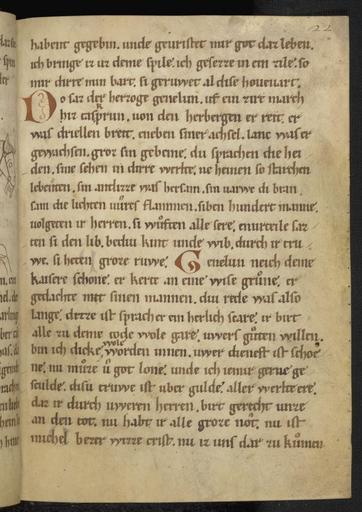 22
habent gegebin. unde geuristet mir got daz leben.
ich bringe iz uz deme spile. ich gesezze in ein zile. so
mir dirre min bart. si geruwet al dise houeuart.
Do saz der herzoge genelun. uf ein zire march
hiz taspriun. uon den herbergen er reit. er
was driellen breit. eneben siner achsel. lanc was er
gewachsen. groz sin gebeine. du sprachen die hei
den. sine sehen in dirre werlte. ne heinen so starchen
lebenten. sin antlizze was hersam. sin uarwe di bran.
sam die liechten uures flammen. siben hundert manne.
uolgeten ir herren. si wůften alle sere.
ten si den lib. bediu kint unde wib. durch ir tru
we. si heten groze ruwe. Genelun neich deme
kaisere schone. er kerte an eine wise grůne. er
gedachte mit sinen mannen. diu rede was also
lange. derze ist sprach er ein herlich scare. ir birt
alle zu deme tode wole gare. uwers gůten willen.
bin ich dicke wole worden innen. uwer dienest ist schoe
ne. nu můze ů got lone. unde ich iemir gerne ge
sculde. disu truwe ist uber gulde. aller werlte ere.
daz ir durch uweren herren. birt gerecht unze
an den tot. nu habt ir alle groze not. nu ist
michel bezer wizze crist. nu iz uns dar zu kůmen